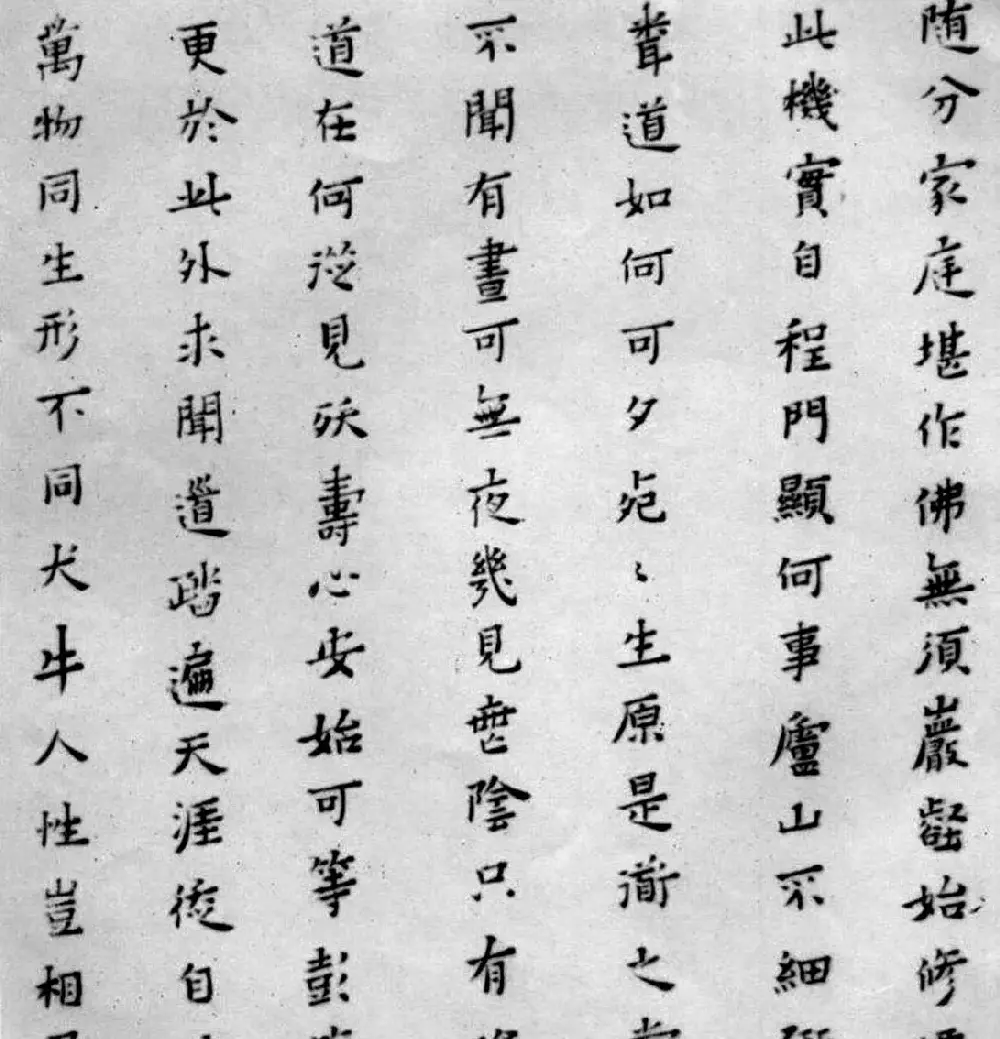 随分家庭堪作佛無須巖壑始修
此機實自程門顯何事廬山不細
道如何可夕死〻生原是衜之
不聞有晝可無夜幾見陰只有
道在何從見殀壽心安始可等彭
更於此外求聞道踏遍天涯徒自
萬物同生形不同犬牛人性豈相